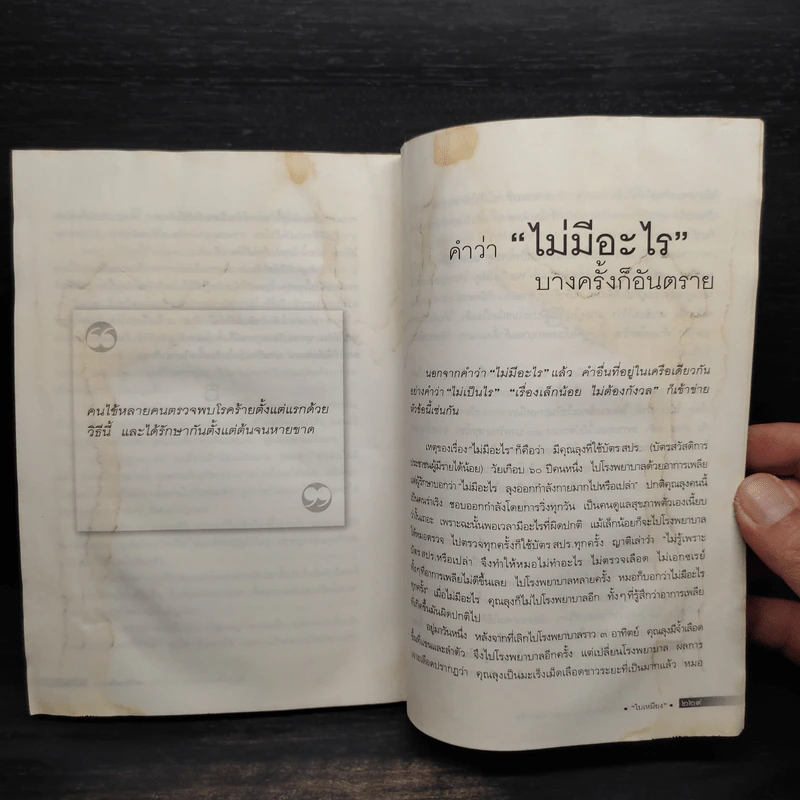 คนไข้หลายคนตรวจพบโรคร้ายตั้งแต่แรกด้วย
วิธีนี้ และได้รักษากันตั้งแต่ต้นจนหายขาด
คำว่า “ไม่มีอะไร”
บางครั้งก็อันตราย
นอกจากคำว่า “ไม่มีอะไร” แล้ว คำอื่นที่อยู่ในเครือเดียวกัน
อย่างคำว่า “ไม่เป็นไร” “เรื่องเล็กน้อย ไม่ต้องกังวล” ก็เข้าข่าย
หัวข้อนี้เช่นกัน
เหตุของเรื่อง “ไม่มีอะไร” ก็คือว่า มีคุณลุงที่ใช้บัตร สปร. (บัตรสวัสดิการ
ประชาชนผู้มีรายได้น้อย) วัยเกือบ ๖๐ ปีคนหนึ่ง ไปโรงพยาบาลด้วยอาการเพลีย
แต่ผู้รักษาบอกว่า “ไม่มีอะไร ลุงออกกำลังกายมากไปหรือเปล่า” ปกติคุณลุงคนนี้
เป็นคนร่าเริง ชอบออกกำลังโดยการวิ่งทุกวัน เป็นคนดูแลสุขภาพตัวเองเนี้ยบ
ว่างั้นเถอะ เพราะฉะนั้นพอเวลามีอะไรที่ผิดปกติ แม้เล็กน้อยก็จะไปโรงพยาบาล
ให้หมอตรวจ ไปตรวจทุกครั้งก็ใช้บัตร สปร.ทุกครั้ง ญาติเล่าว่า “ไม่รู้เพราะ
บัตร สปร.หรือเปล่า จึงทำให้หมอไม่ทำอะไร ไม่ตรวจเลือด ไม่เอกซเรย์
ทั้งๆ ที่อาการเพลียไม่ดีขึ้นเลย ไปโรงพยาบาลหลายครั้ง หมอก็บอกว่าไม่มีอะไร
ทุกครั้ง” เมื่อไม่มีอะไร คุณลุงก็ไม่ไปโรงพยาบาลอีก ทั้งๆ ที่รู้สึกว่าอาการเพลีย
ที่เกิดขึ้นมันผิดปกติไป
อยู่มาวันหนึ่ง หลังจากที่เลิกไปโรงพยาบาลราว ๓ อาทิตย์ คุณลุงมีจ้ำเลือด
ขึ้นที่แขนและลำตัว จึงไปโรงพยาบาลอีกครั้ง แต่เปลี่ยนโรงพยาบาล ผลการ
เจาะเลือดปรากฏว่า คุณลุงเป็นมะเร็งเม็ดเลือดขาวระยะที่เป็นมากแล้ว หมอ
• “ใบเหมียง” • ๒๒๙